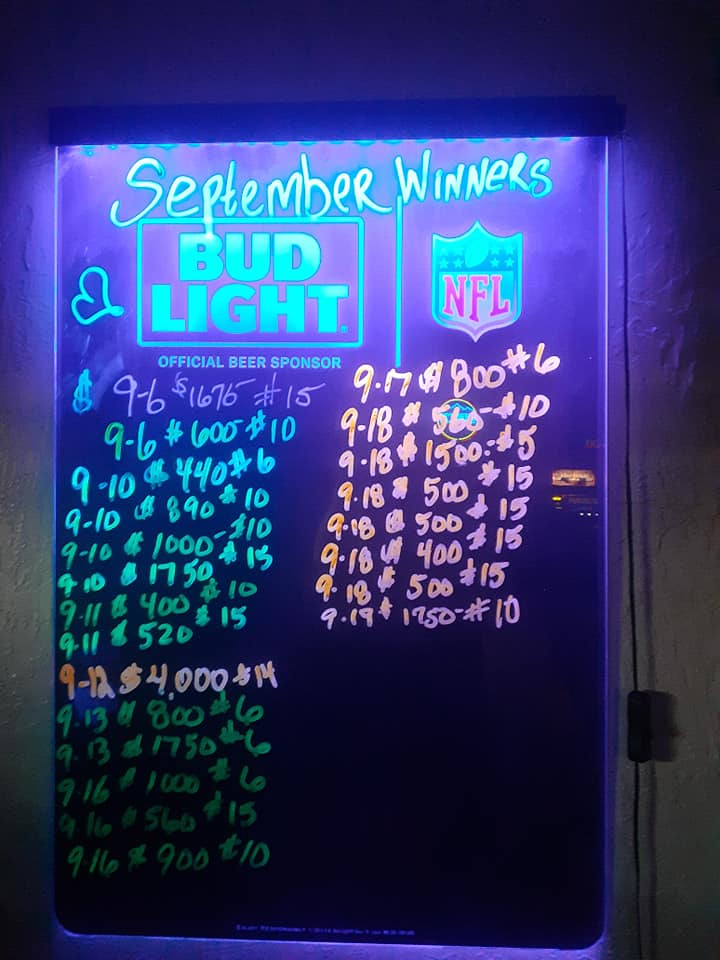 September Winners
BUD
LIGHT
OFFICIAL BEER SPONSOR
NFL
9-6 $1675 #15
9-6 $600 #10
9-10 $440 #6
9-10 $890 #10
9-10 $1000 #10
9-10 $1750 #15
9-11 $400 #10
9-11 $520 #15
9-12 $4,000 #14
9-13 $800 #6
9-13 $1750 #6
9-16 $1000 #6
9-16 $560 #15
9-16 $900 #10
9-17 $800 #6
9-18 $560 #10
9-18 $1500 #5
9-18 $500 #15
9-18 $500 #15
9-18 $400 #15
9-18 $500 #15
9-19 $1250 #10
ENJOY RESPONSIBLY